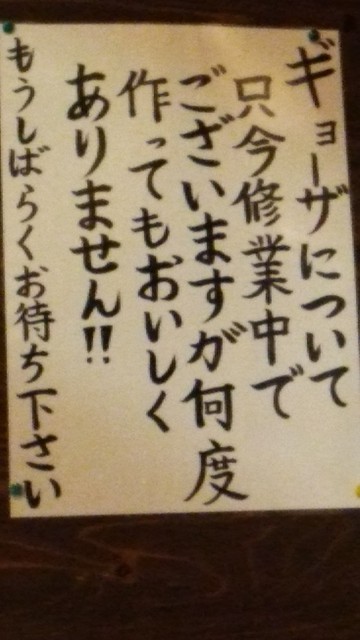 ギョーザについて
只今修業中で
ございますが何度
作ってもおいしく
ありません!!
もうしばらくお待ち下さい